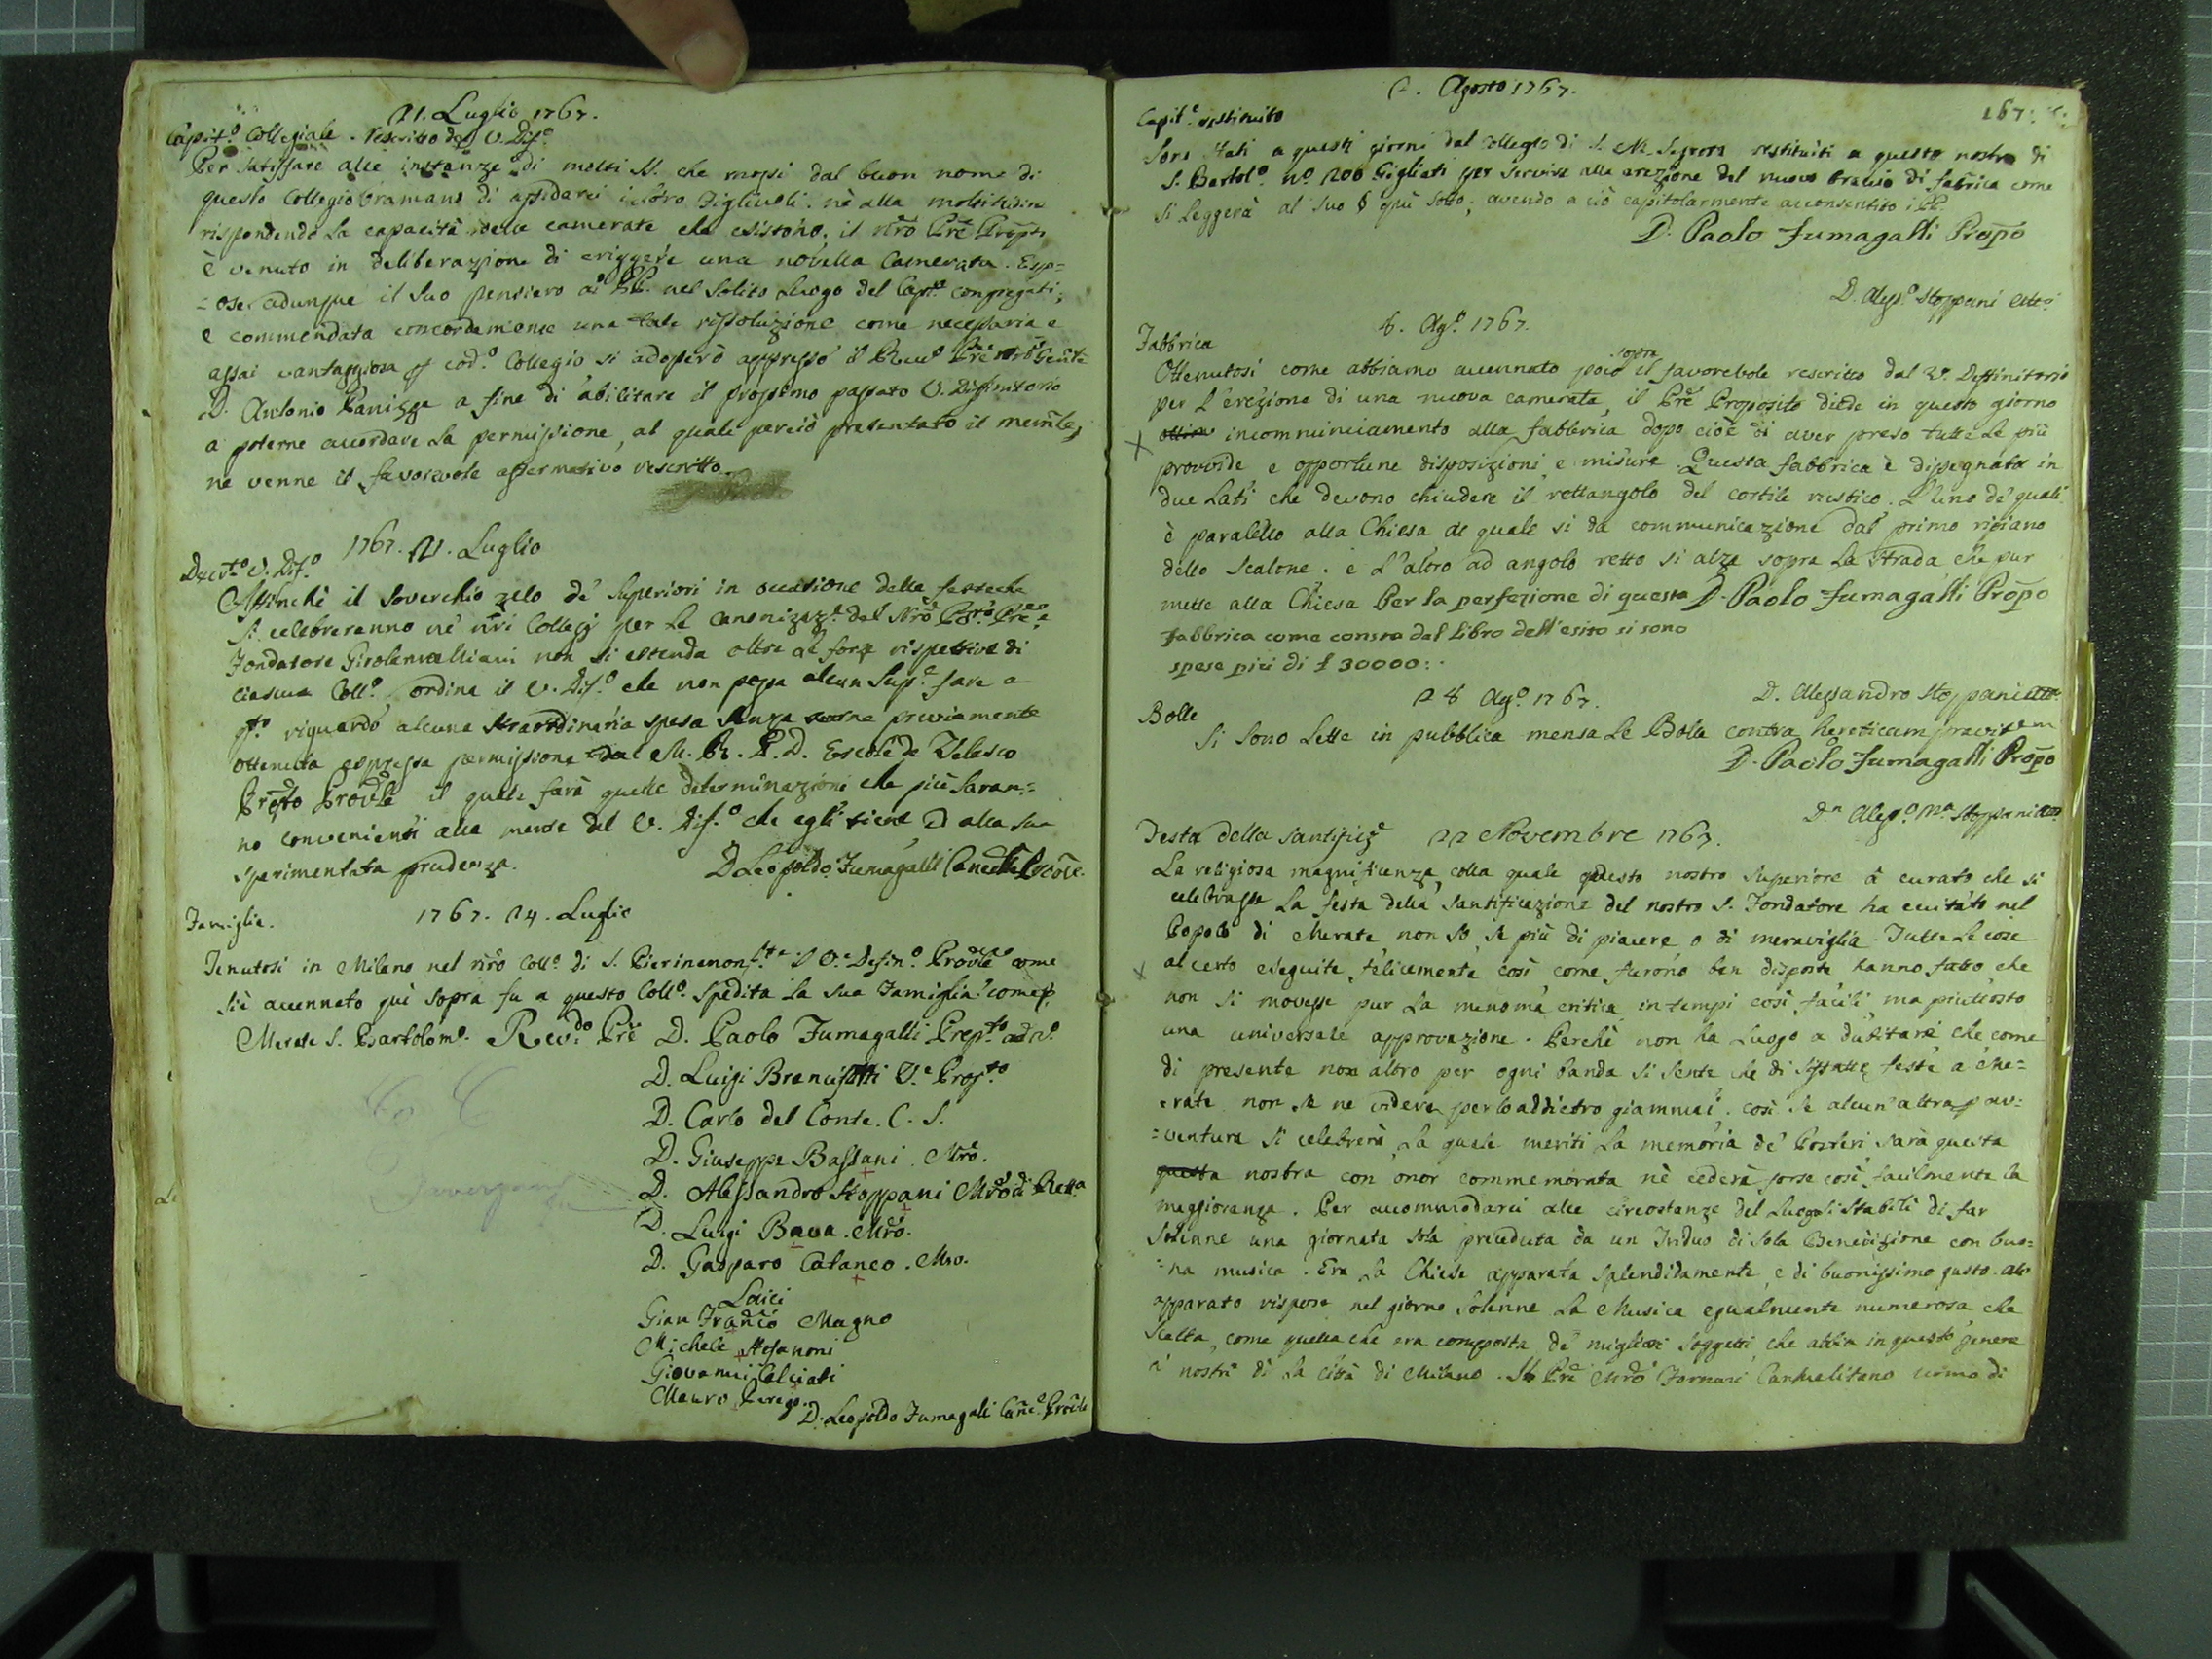 21. Luglio 1767.
Capit.º Collegiale. Rescritto del V. Dif.º
Per satisfare alle instanze di molti SS. che mossi dal buon nome di
questo Collegio bramano di affidarci i loro Figliuoli. nè alla moltitudine
rispondendo la capacità delle camerate che esistono, il nrõ Prẽ Propto
è venuto in deliberazione di eriggere una novella Camerata. Esp=
=ose adunque il suo pensiero ai PP. nel solito luogo del Capº congregati;
e commendata concordemente una tale rissoluzione come necessaria e
assai vantaggiosa cod.º Collegio, si adoperò appresso il Rmo Prẽ nrõ Genle
D. Antonio Panizza a fine di abilitare il prossimo passato V. Diffinitorio
a poterne accordare la permissione, al quale perciò presentato il memle,
ne venne il favorevole affermativo rescritto.
1767. 21. Luglio
Decrto V. Dif.º
Affinchè il soverchio zelo de' Superiori in occasione delle feste che
si celebreranno ne' nrĩ Collegj per la Canonizaz.e del Nrõ Prẽ e
Fondatore Girolamo Miani non si estenda oltre le forze rispettive di
ciascun Coll.º, ordina il V. Dif.º che non possa alcun Sup.e fare a
riguardo alcuna straordinaria spesa senza averne previamente
ottenuta espressa permissione dal M. R. P. D. Ercole de Velasco
Prepto Provle il quale farà quelle determinazioni che più saran=
no convenienti alla mente del V. Dif.º che egli tiene ed alla sua
sperimentata prudenza.
D. Leopoldo Fumagalli Cancell. Provle.
Famiglia.
1767. 24. Luglio
Tenutosi in Milano nel nrõ Coll.º di S. Pier in monf.te il V.e Defin.º Provle come
si è accennato quì sopra fu a questo Coll.º spedita la sua Famiglia come
Merate S. Bartolom.º Rev.do Prẽ D. Paolo Fumagalli Prep.to
D. Luigi Brancisotti V.e Prop.to
D. Carlo del Conte. C. S.
D. Giuseppe Bassani. Mrõ.
D. Alessandro Stoppani Mrõ di Retta
D. Luigi Bava. Mrõ.
D. Gasparo Cataneo. Mro.
Laici
Gian Franco Magno
Michele Stefanoni
Giovanni Calciati
Mauro Perego.
D. Leopoldo Fumagalli Canc.e Provle
2. Agosto 1767.
167.
Capit.e restituito
Sono stati a questi giorni dal Collegio di S. M. Segreta restituiti a questo nostro di
S. Bartol.º nº. 200 Gigliati per servire alla erezione del nuovo braccio di fabrica come
si leggerà al suo § quì sotto; avendo a ciò capitolarmente acconsentito i PP.
D. Paolo Fumagalli Propo
D. Aless.º Stoppani Atto.
6. Ag.º 1767.
Fabbrica
sopra
Ottenutosi come abbiamo accennato poco il favorebole rescritto dal V. Deffinitorio
per l'erezione di una nuova camerata, il Prẽ Proposito diede in questo giorno
incomminciamento alla fabbrica dopo cioè di aver preso tutte le più
provvide e opportune disposizioni e misure. Questa fabbrica è dissegnata in
due lati che devono chiudere il rettangolo del cortile rustico. L'uno de' quali
è paralello alla Chiesa al quale si da communicazione dal primo ripiano
dello Scalone. e l'altro ad angolo retto si alza sopra la strada che pur
mette alla Chiesa Per la perfezione di questa D. Paolo Fumagalli Propo
Fabbrica come consta dal Libro dell'esito si sono
spese più di £ 30000:.
28 Ag.º 1767.
D. Alessandro Stoppani Atto.
Bolle
Si sono lette in pubblica mensa le Bolle contra hereticam pravitem
D. Paolo Fumagalli Propo
Dn Aless.º Ma Stoppani Atto.
Festa della Santificaz.e 22 Novembre 1767.
La religiosa magnificenza, colla quale questo nostro Superiore à curato che si
celebrasse la festa della Santificazione del nostro S. Fondatore ha eccitato nel
Popolo di Merate non so se più di piacere o di meraviglia. Tutte le cose
al certo eseguite felicemente così come furono ben disposte hanno fatto che
non si movesse pur la menoma critica in tempi così facili, ma piuttosto
una universale approvazione. Perchè non ha luogo a dubitare che come
di presente non altro per ogni banda si sente che di siffatte feste a Me=
=rate non se ne videro per lo addietro giammai. così se alcun'altra p av=
=ventura si celebrerà, la quale meriti la memoria de' Posteri sarà questa
questa nostra con onor commemorata nè cederà forse così facilmente la
maggioranza. Per accommodarci alle circostanze del luogo si stabilì di far
solenne una giornata sola preceduta da un Triduo di sola Benedizione con buo=
=na musica. Era la Chiesa apparata splendidamente, e di buonissimo gusto. All'
apparato rispose nel giorno solenne la Musica egualmente numerosa che
scelta, come quella che era composta de' migliori soggetti, che abbia in questo genere
a' nostri dì la Città di Milano. Il Prẽ Mrõ Fornari Carmelitano uomo di